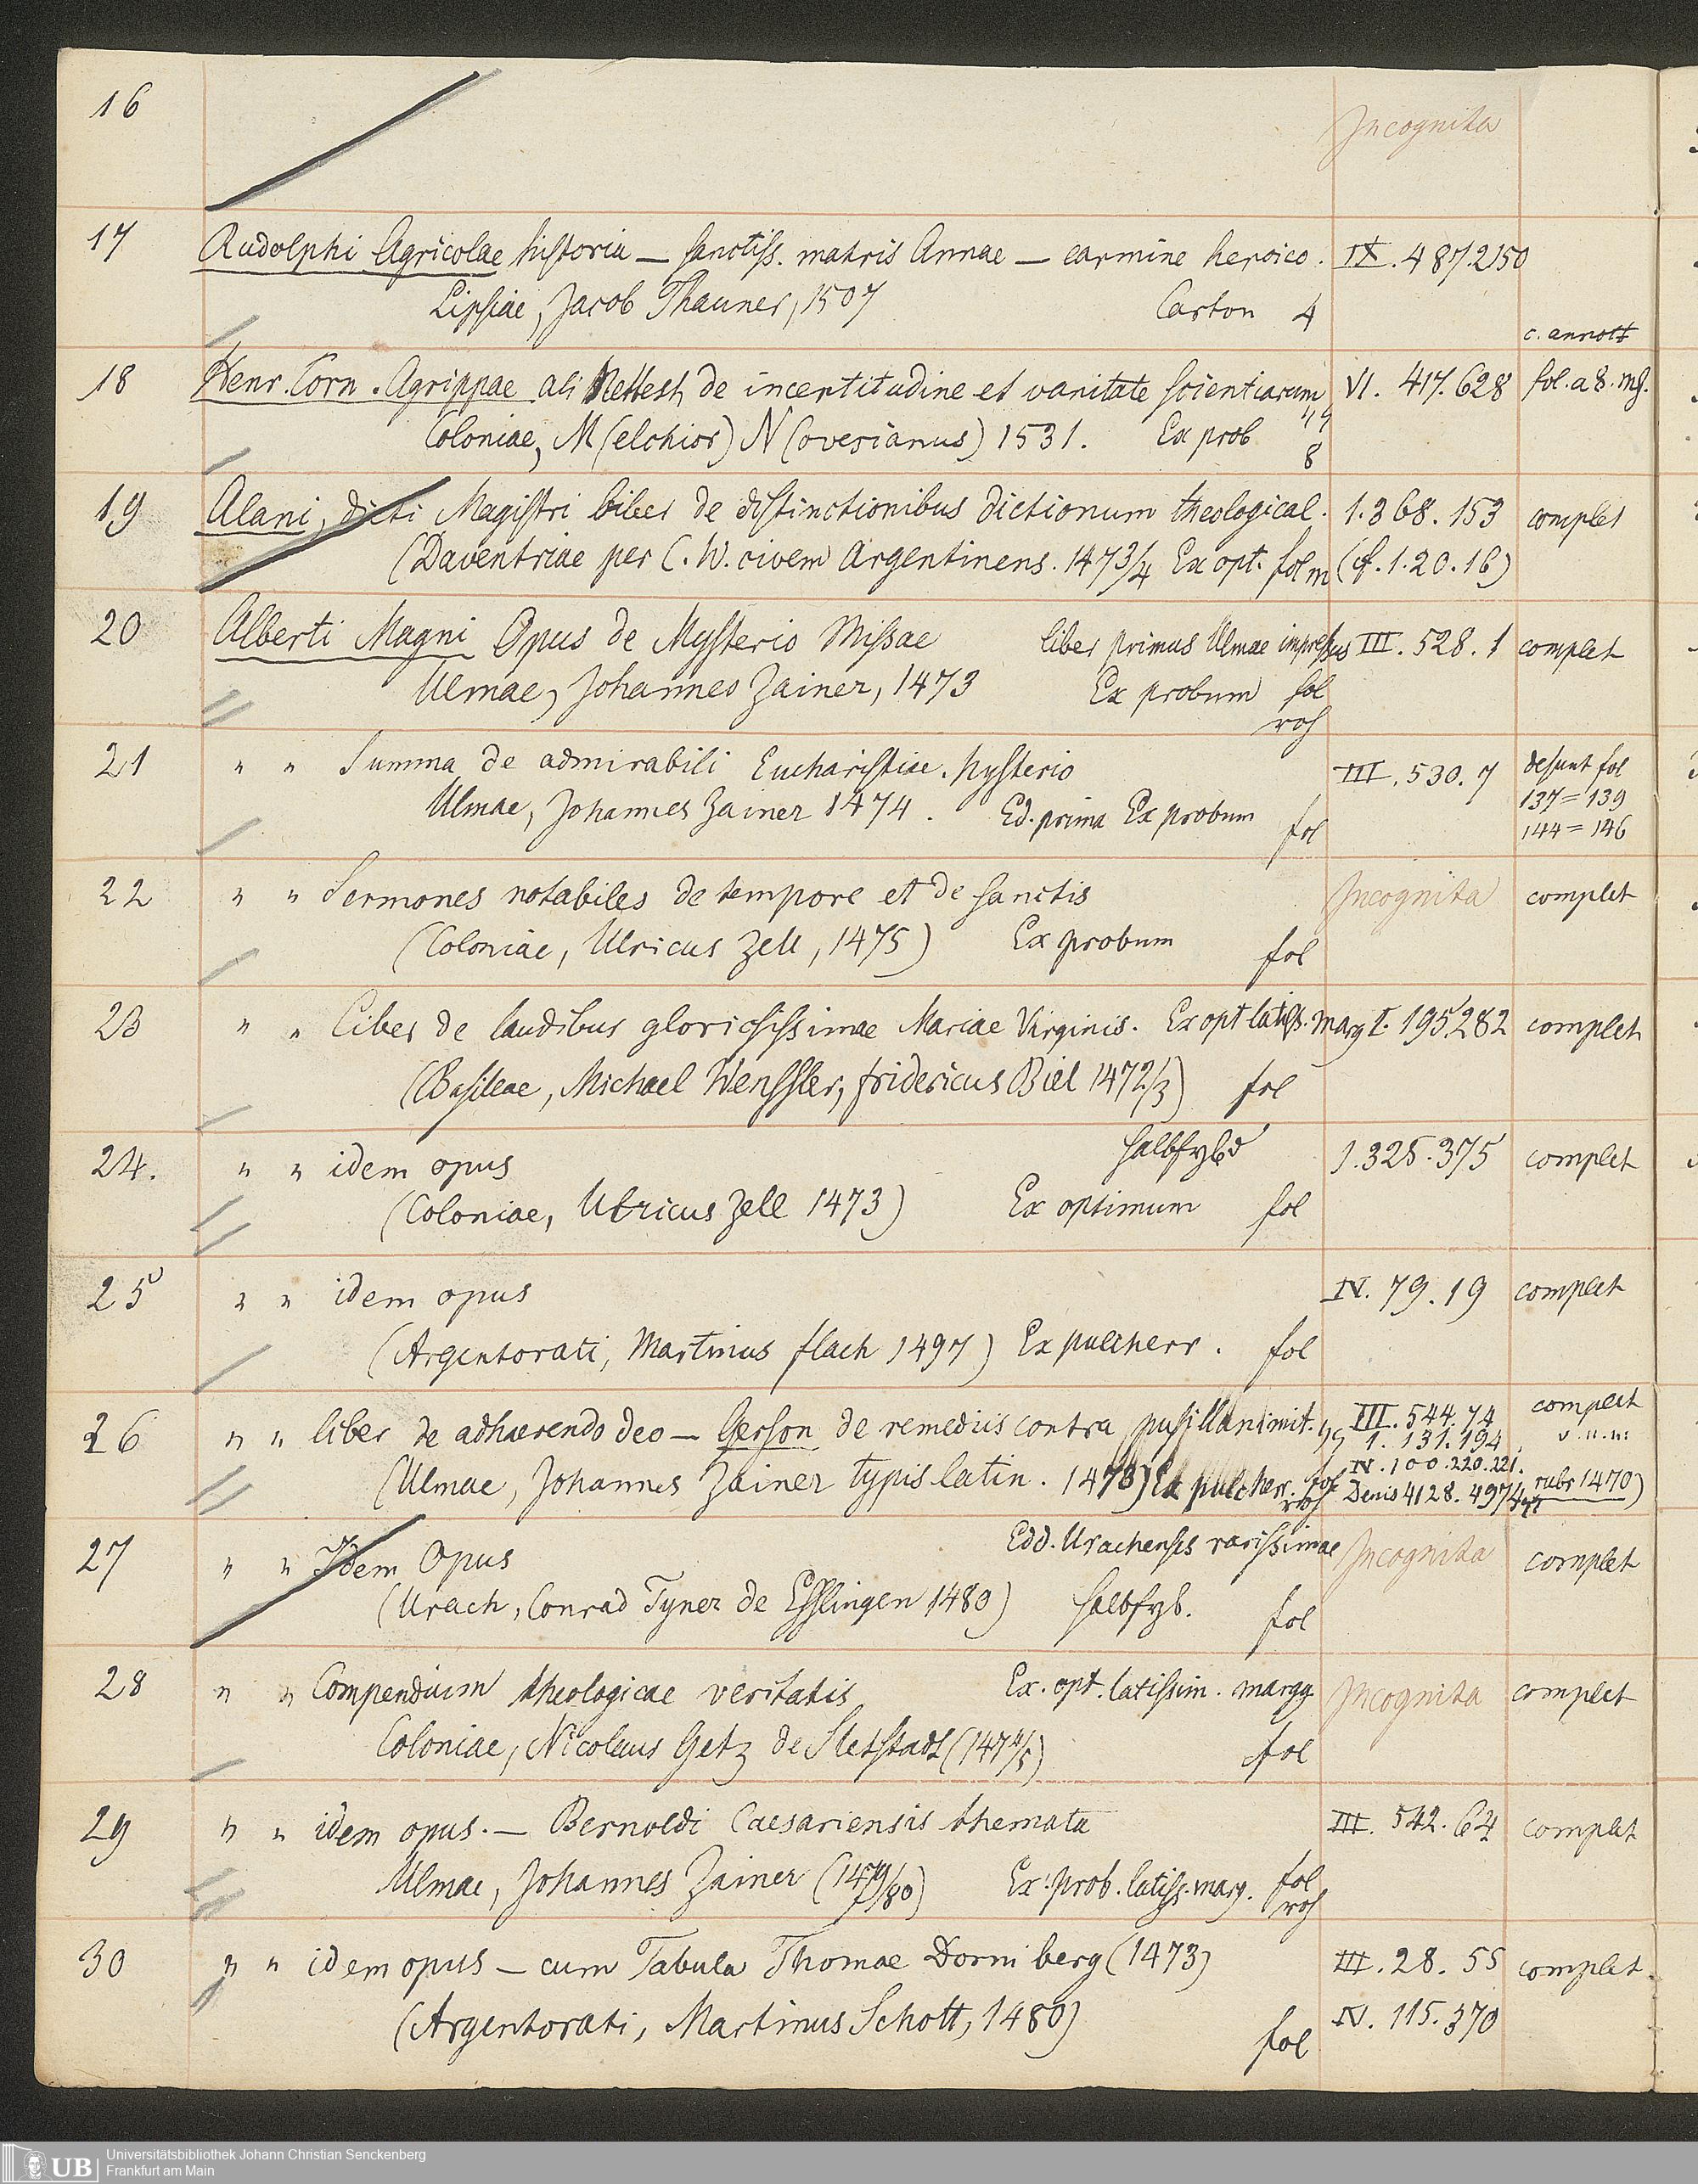 16
Incognita
17 Rudolphi Agricolae historia — sanctiss. matris Annae — carmine heroico. IX. 487.2150
Lipsiae, Jacob Thanner, 1507 Carton 4
c. annott
18 Henr. Corn. Agrippae ab Nettesh de incertitudine et vanitate scientiarum VI. 417. 628 fol. a 8. mg.
Coloniae, M(elchior) N(ovesianus) 1531. Ex prob 8
19 Alani, dicti Magistri liber de distinctionibus dictionum theological. 1.368.153 complet
(Daventriae per C. W. civem Argentinens. 1473/4 Ex opt. fol m (cf. 1.20.16)
20 Alberti Magni Opus de Mysterio Missae liber primus Ulmae impressus III. 528. 1 complet
Ulmae, Johannes Zainer, 1473 Ex probum fol
roh
21 " " Summa de admirabili Eucharistiae. Mysterio III. 530. 7 desunt fol
137=139
Ulmae, Johannes Zainer 1474. Ed. prima Ex probum fol 144=146
22 " " Sermones notabiles de tempore et de sanctis Incognita complet
(Coloniae, Ulricus Zell, 1475) Ex probum fol
23 " " Liber de laudibus gloriosissimae Mariae Virginis. Ex opt latiss. marg I. 195.282 complet
(Basileae, Michael Wenssler, Fridericus Biel 1472/3) fol
24. " " idem opus halbfzbd 1.325.375 complet
(Coloniae, Ulricus Zell 1473) Ex optimum fol
25 " " idem opus IV. 79. 19 complet
(Argentorati, Martinus Flach 1497) Ex pulcherr. fol
26 " " liber de adhaerendo deo — Gerson de remediis contra pusillanimit. III. 544. 74 complet
1. 131. 194 v. n. n:
IV. 100. 220. 221.
(Ulmae, Johannes Zainer typis latin. 1473) Ex pulcherr. fol roh Denis 4128. 4974 rubr 1470)
27 " " Idem Opus Edd. Urachenses rarissimae Incognita complet
(Urach, Conrad Fyner de Esslingen 1480) halbfzb. fol
28 " " Compendium theologicae veritatis Ex. opt. latissim. margg Incognita complet
Coloniae, Nicolaus Getz de Sletstadt (1474/5) fol
29 " " idem opus. — Bernoldi Caesariensis themata III. 542. 64 complet
Ulmae, Johannes Zainer (1479/80) Ex. prob. latiss. marg. fol
roh
30 " " idem opus — cum Tabula Thomae Dorniberg (1473) III. 28. 55 complet
(Argentorati, Martinus Schott, 1480) fol IV. 115. 370
UB Universitätsbibliothek Johann Christian Senckenberg
Frankfurt am Main